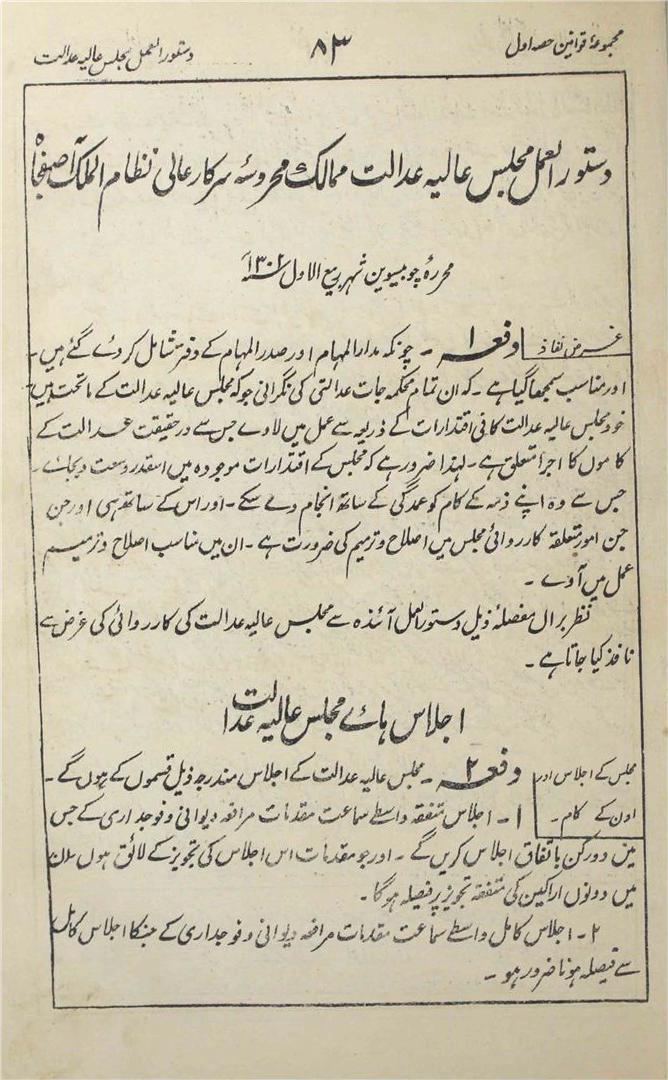 مجموعۂ قوانین حصہ اول
۸۳
دستور العمل مجلس عالیہ عدالت
دستور العمل مجلس عالیہ عدالت ممالک محروسہ سرکار عالی نظام الملک آصفجاہ
محررہ چوبیسوین شہر ربیع الاول ۱۳۰۲
غرض نفاذ
دفعہ ۱ - چونکہ مدار المہام اور صدر المہام کے دفتر شامل کر دئے گئے ہیں -
اور مناسب سمجھا گیا ہے - کہ ان تمام محکمہ جات عدالتی کی نگرانی جو کہ مجلس عالیہ عدالت کے ماتحت ہیں
خود مجلس عالیہ عدالت کافی اقتدارات کے ذریعہ سے عمل میں لاوے جس سے درحقیقت عدالت کے
کاموں کا اجرا متعلق ہے - لہذا ضرور ہے کہ مجلس کے اقتدارات موجودہ میں اسقدر وسعت دیجائے -
جس سے وہ اپنے ذمہ کے کام کو عمدگی کے ساتھ انجام دے سکے - اور اس کے ساتھ ہی اور جن
جن امور متعلقہ کارروائی مجلس میں اصلاح و ترمیم کی ضرورت ہے - ان میں مناسب اصلاح و ترمیم
عمل میں آوے -
نظر بر ال مفصلۂ ذیل دستور العمل آئندہ سے مجلس عالیہ عدالت کی کارروائی کی غرض سے
نافذ کیا جاتا ہے -
اجلاس ہائے مجلس عالیہ عدالت
مجلس کے اجلاس اور
اون کے کام -
دفعہ ۲ - مجلس عالیہ عدالت کے اجلاس مندرجہ ذیل قسموں کے ہوں گے -
۱ - اجلاس متفقہ واسطے سماعت مقدمات مرافعہ دیوانی و فوجداری کے جس
میں دو رکن باتفاق اجلاس کریں گے - اور جو مقدمات اس اجلاس کی تجویز کے لائق ہوں ان
میں دونوں اراکین کی متفقہ تجویز پر فیصلہ ہو گا -
۲ - اجلاس کامل واسطے سماعت مقدمات مرافعہ دیوانی و فوجداری کے جنکا اجلاس کامل
سے فیصلہ ہونا ضرور ہو -